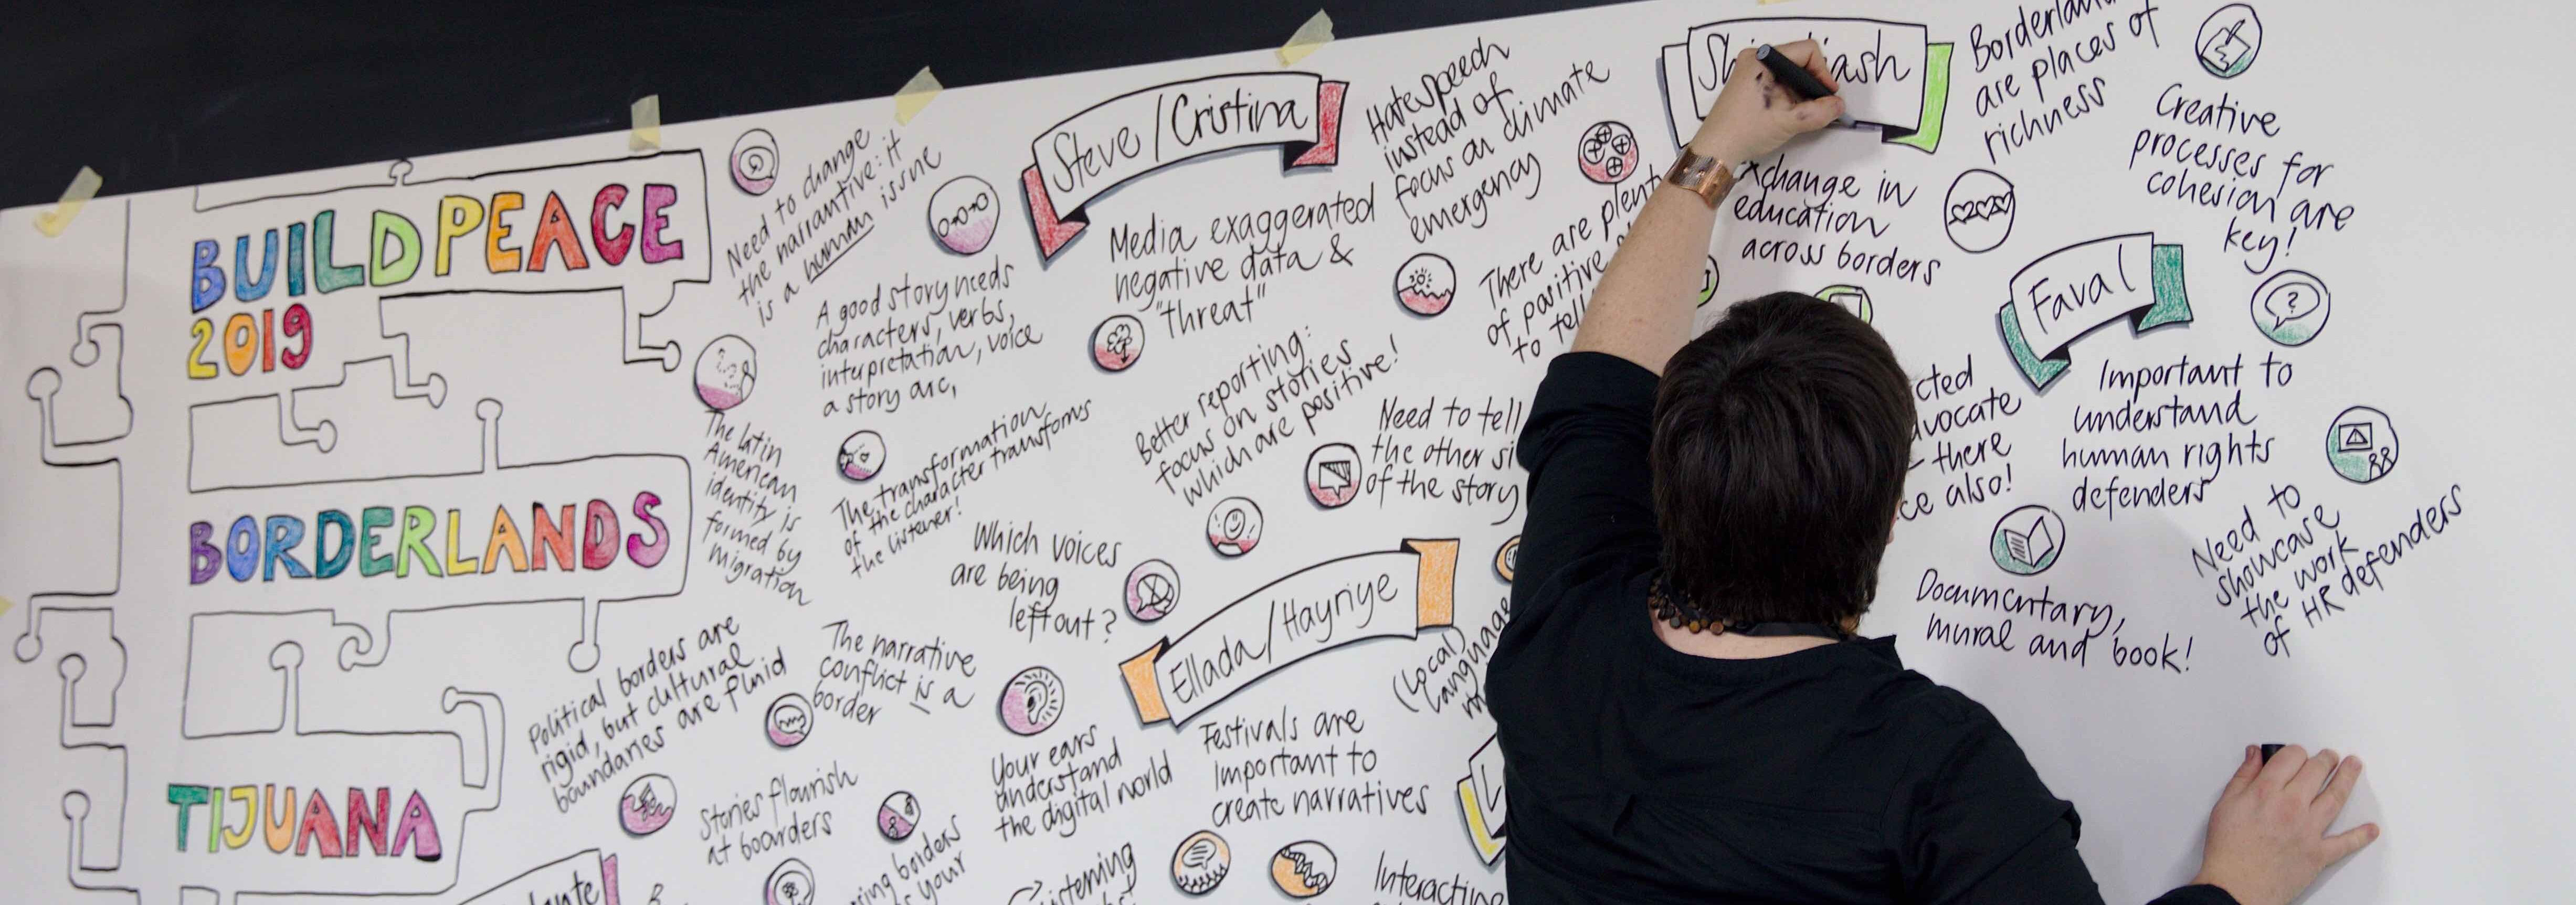 BUILD PEACE
2019
BORDERLANDS
TIJUANA
Need to change
the narrantive: it
is a human issue
A good story needs
characters, verbs,
interpretation, voice
a story arc,
The Latin
American
identity is
formed by
migration
The transformation
of the character transforms
the listener!
Which voices
are being
left out?
Political borders are
rigid, but cultural
boundaries are fluid
The narrative
conflict is a
border
Stories flourish
at boarders
borders
your
Your ears
understand
the digital world
Steve / Cristina
Media exaggerated
negative data &
"threat"
Hatespeech
instead of
focus on climate
emergency
Better reporting:
focus on stories
which are positive!
There are
of positive
to tell
Need to tell
the other
of the story
Ellada / Hayriye
Festivals are
important to
create narratives
(Local)
language
Interacting
education
across borders
Borderland
are places of
richness
Creative
processes for
cohesion are
key!
there
also!
Faval
Important to
understand
human rights
defenders
Documentary,
mural and book!
Need to
showcase
the work
of HR defenders